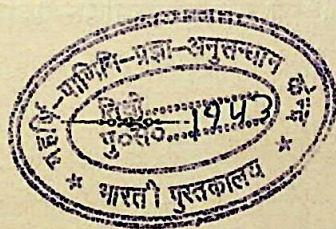 महर्षि-पाणिनि-प्रज्ञा-अनुसन्धान केन्द्र
तिथी..............
पु०सं०.....1943
* भारती पुस्तकालय *